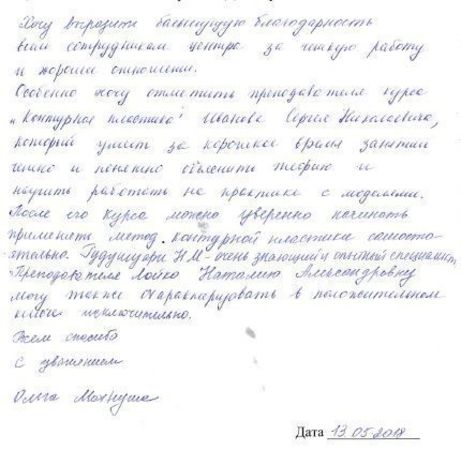 Хочу выразить большущую благодарность
всем сотрудникам центра за четкую работу
и хорошее отношение.
Особенно хочу отметить преподавателя курса
"Контурная пластика" Иванова Сергея Николаевича,
который умеет за короткое время занятий
четко и понятно объяснить теорию и
научить работать на практике с моделями.
После его курса можно уверенно начинать
применять метод контурной пластики самосто-
ятельно. Н.М - очень знающий и опытный специалист.
Преподавателя Лойко Наталию Александровну
могу также охарактеризовать в положительном
ключе исключительно.
Всем спасибо
С уважением
Ольга
Дата 13.05.2018